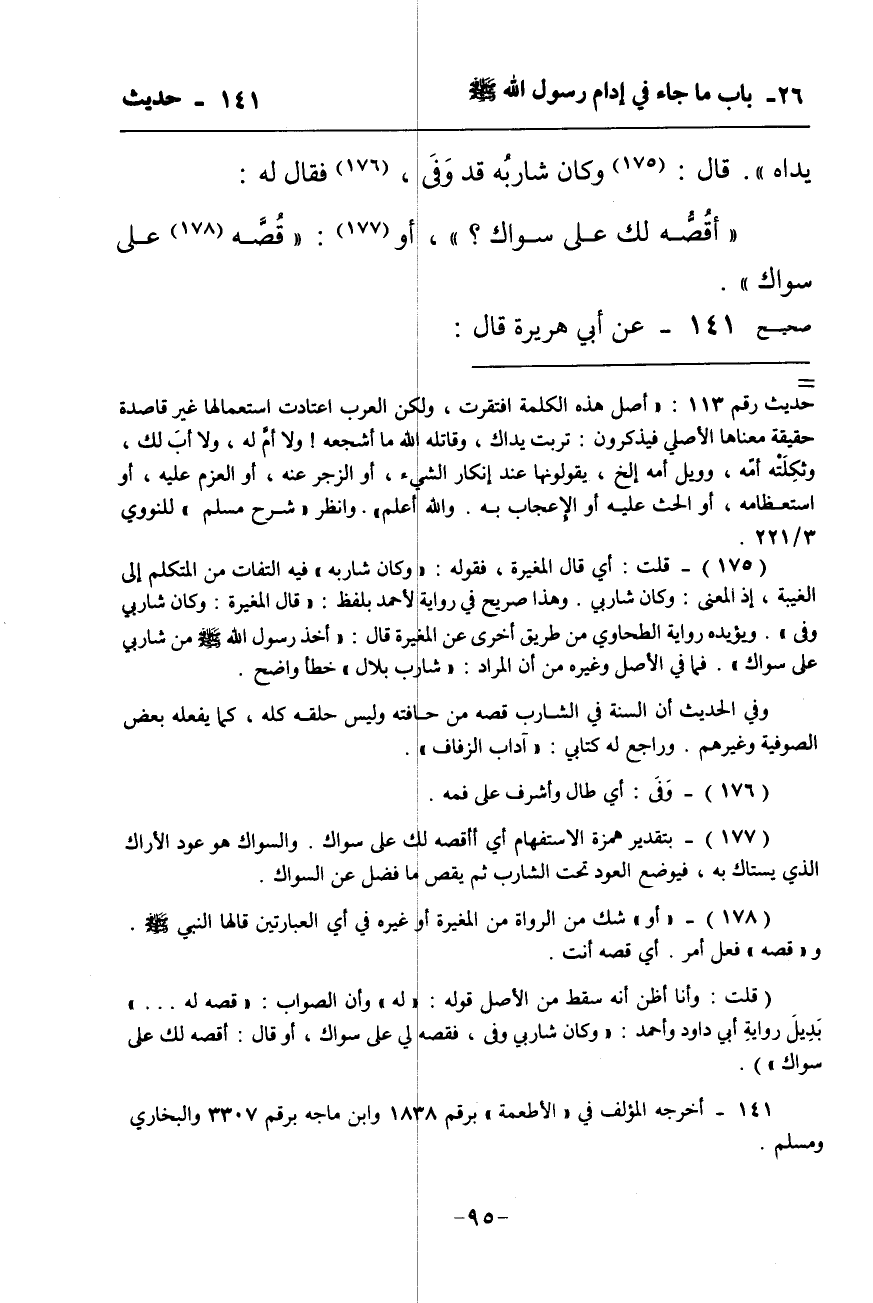 ٢٦- باب ما جاء في إدام رسول الله ﷺ ١٤١ - حديث
يداه » . قال : (١٧٥) وكان شاربُه قد وَفَى ، (١٧٦) فقال له :
« أقُصُّـه لك علـى سـواك ؟ » ، أو (١٧٧) : « قُصَّـه (١٧٨) علـى
سواك » .
صحيـح ١٤١ - عن أبي هريرة قال :
=
حديث رقم ١١٣ : « أصل هذه الكلمة افتقرت ، ولكن العرب اعتادت استعمالها غير قاصدة
حقيقة معناها الأصلي فيذكرون : تربت يداك ، وقاتله الله ما أشجعه ! ولا أمَّ له ، ولا أبَ لك ،
وثكِلَتْه أمّه ، وويل أمه إلخ ، يقولونها عند إنكار الشيء ، أو الزجر عنه ، أو العزم عليه ، أو
استعـظامه ، أو الحث عليـه أو الإعجاب بـه . والله أعلم» . وانظر « شـرح مسلم » للنووي
٢٢١/٣ .
( ١٧٥ ) - قلت : أي قال المغيرة ، فقوله : « وكان شاربه » فيه التفات من المتكلم إلى
الغيبة ، إذ المعنى : وكان شاربي . وهذا صريح في رواية لأحمد بلفظ : « قال المغيرة : وكان شاربي
وفى » . ويؤيده رواية الطحاوي من طريق أخرى عن المغيرة قال : « أخذ رسول الله ﷺ من شاربي
على سواك » . فما في الأصل وغيره من أن المراد : « شارب بلال » خطأ واضح .
وفي الحديث أن السنة في الشـارب قصه من حـافته وليس حلقـه كله ، كما يفعله بعض
الصوفية وغيرهم . وراجع له كتابي : « آداب الزفاف » .
( ١٧٦ ) - وَفَى : أي طال وأشرف على فمه .
( ١٧٧ ) - بتقدير همزة الاستفهام أي أأقصه لك على سواك . والسواك هو عود الأراك
الذي يستاك به ، فيوضع العود تحت الشارب ثم يقص ما فضل عن السواك .
( ١٧٨ ) - « أو » شك من الرواة من المغيرة أو غيره في أي العبارتين قالها النبي ﷺ .
و « قصه » فعل أمر . أي قصه أنت .
( قلت : وأنا أظن أنه سقط من الأصل قوله : « له » وأن الصواب : « قصه له ... »
بَدِيلَ روايةِ أبي داود وأحمد : « وكان شاربي وفى ، فقصه لي على سواك ، أو قال : أقصه لك على
سواك » ) .
١٤١ - أخرجه المؤلف في « الأطعمة » برقم ١٨٣٨ وابن ماجه برقم ٣٣٠٧ والبخاري
ومسلم .
-٩٥-